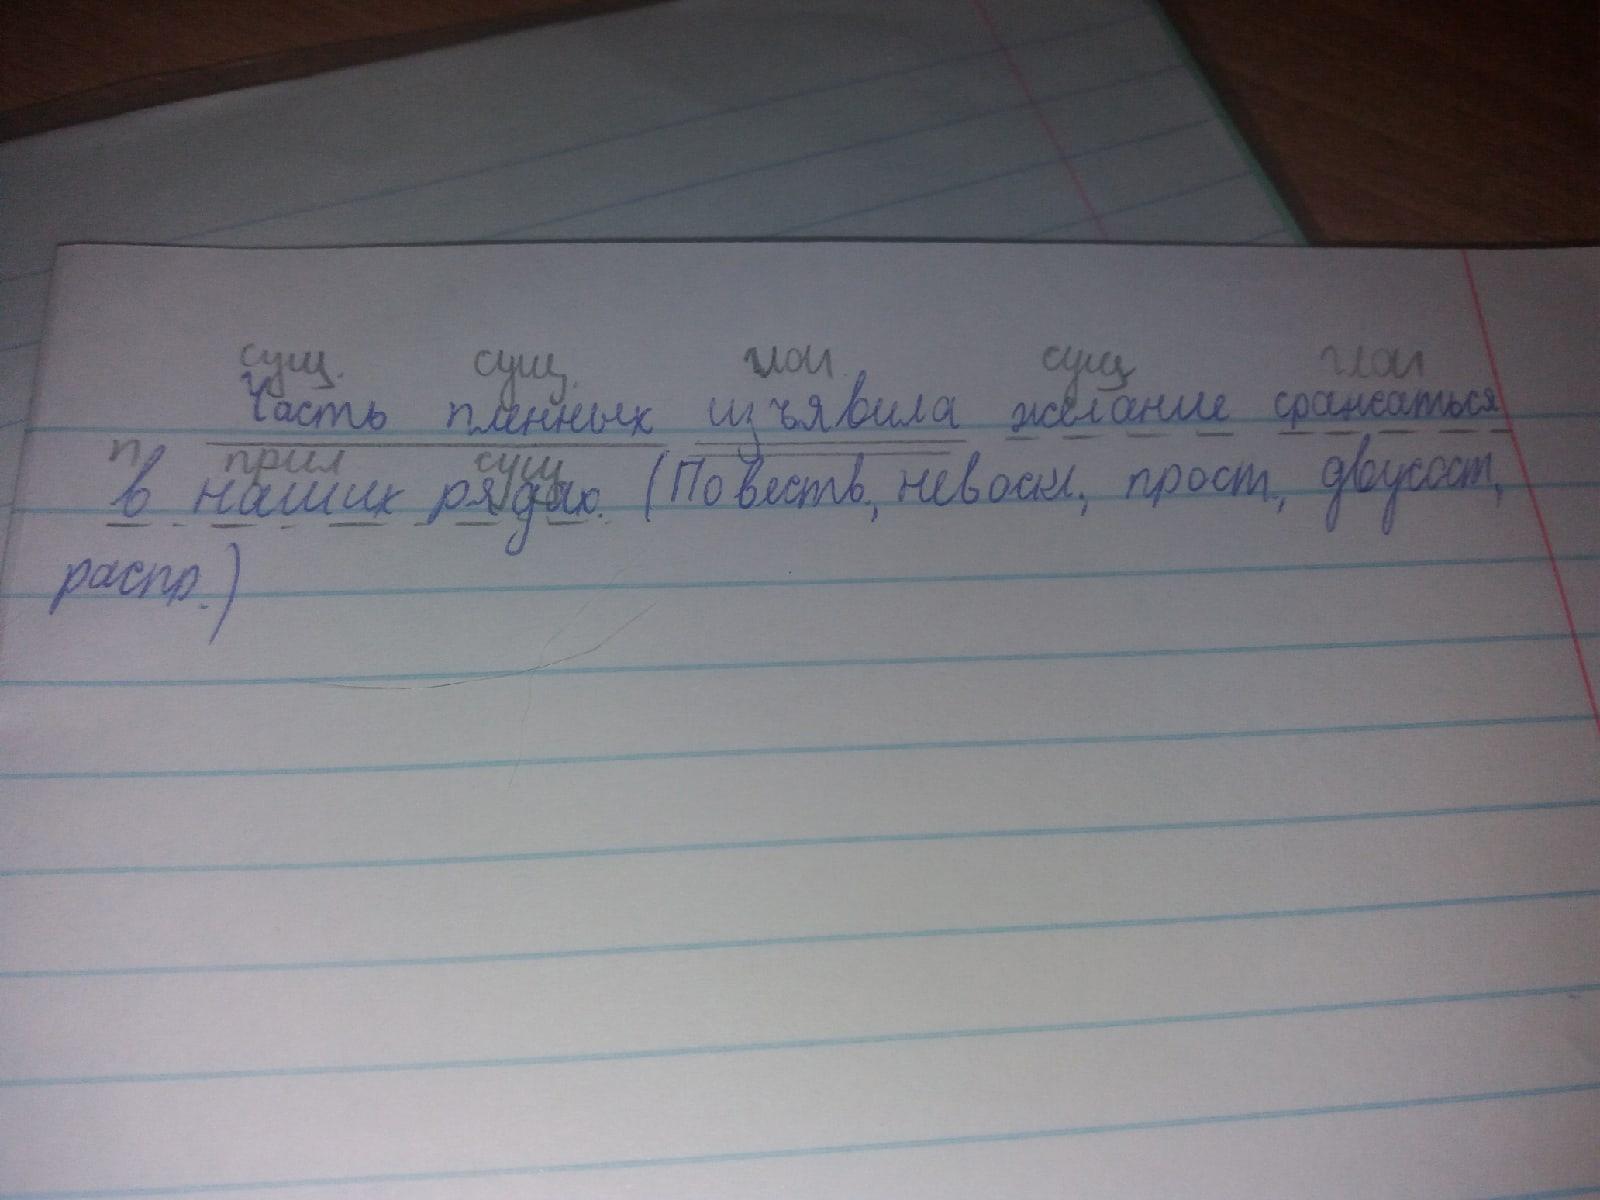 сущ. сущ. глаг. сущ глаг
Часть пленных изъявила желание сражаться
п. прил сущ
в наших рядах. (Повеств., невоскл., прост., двусост.,
распр.)